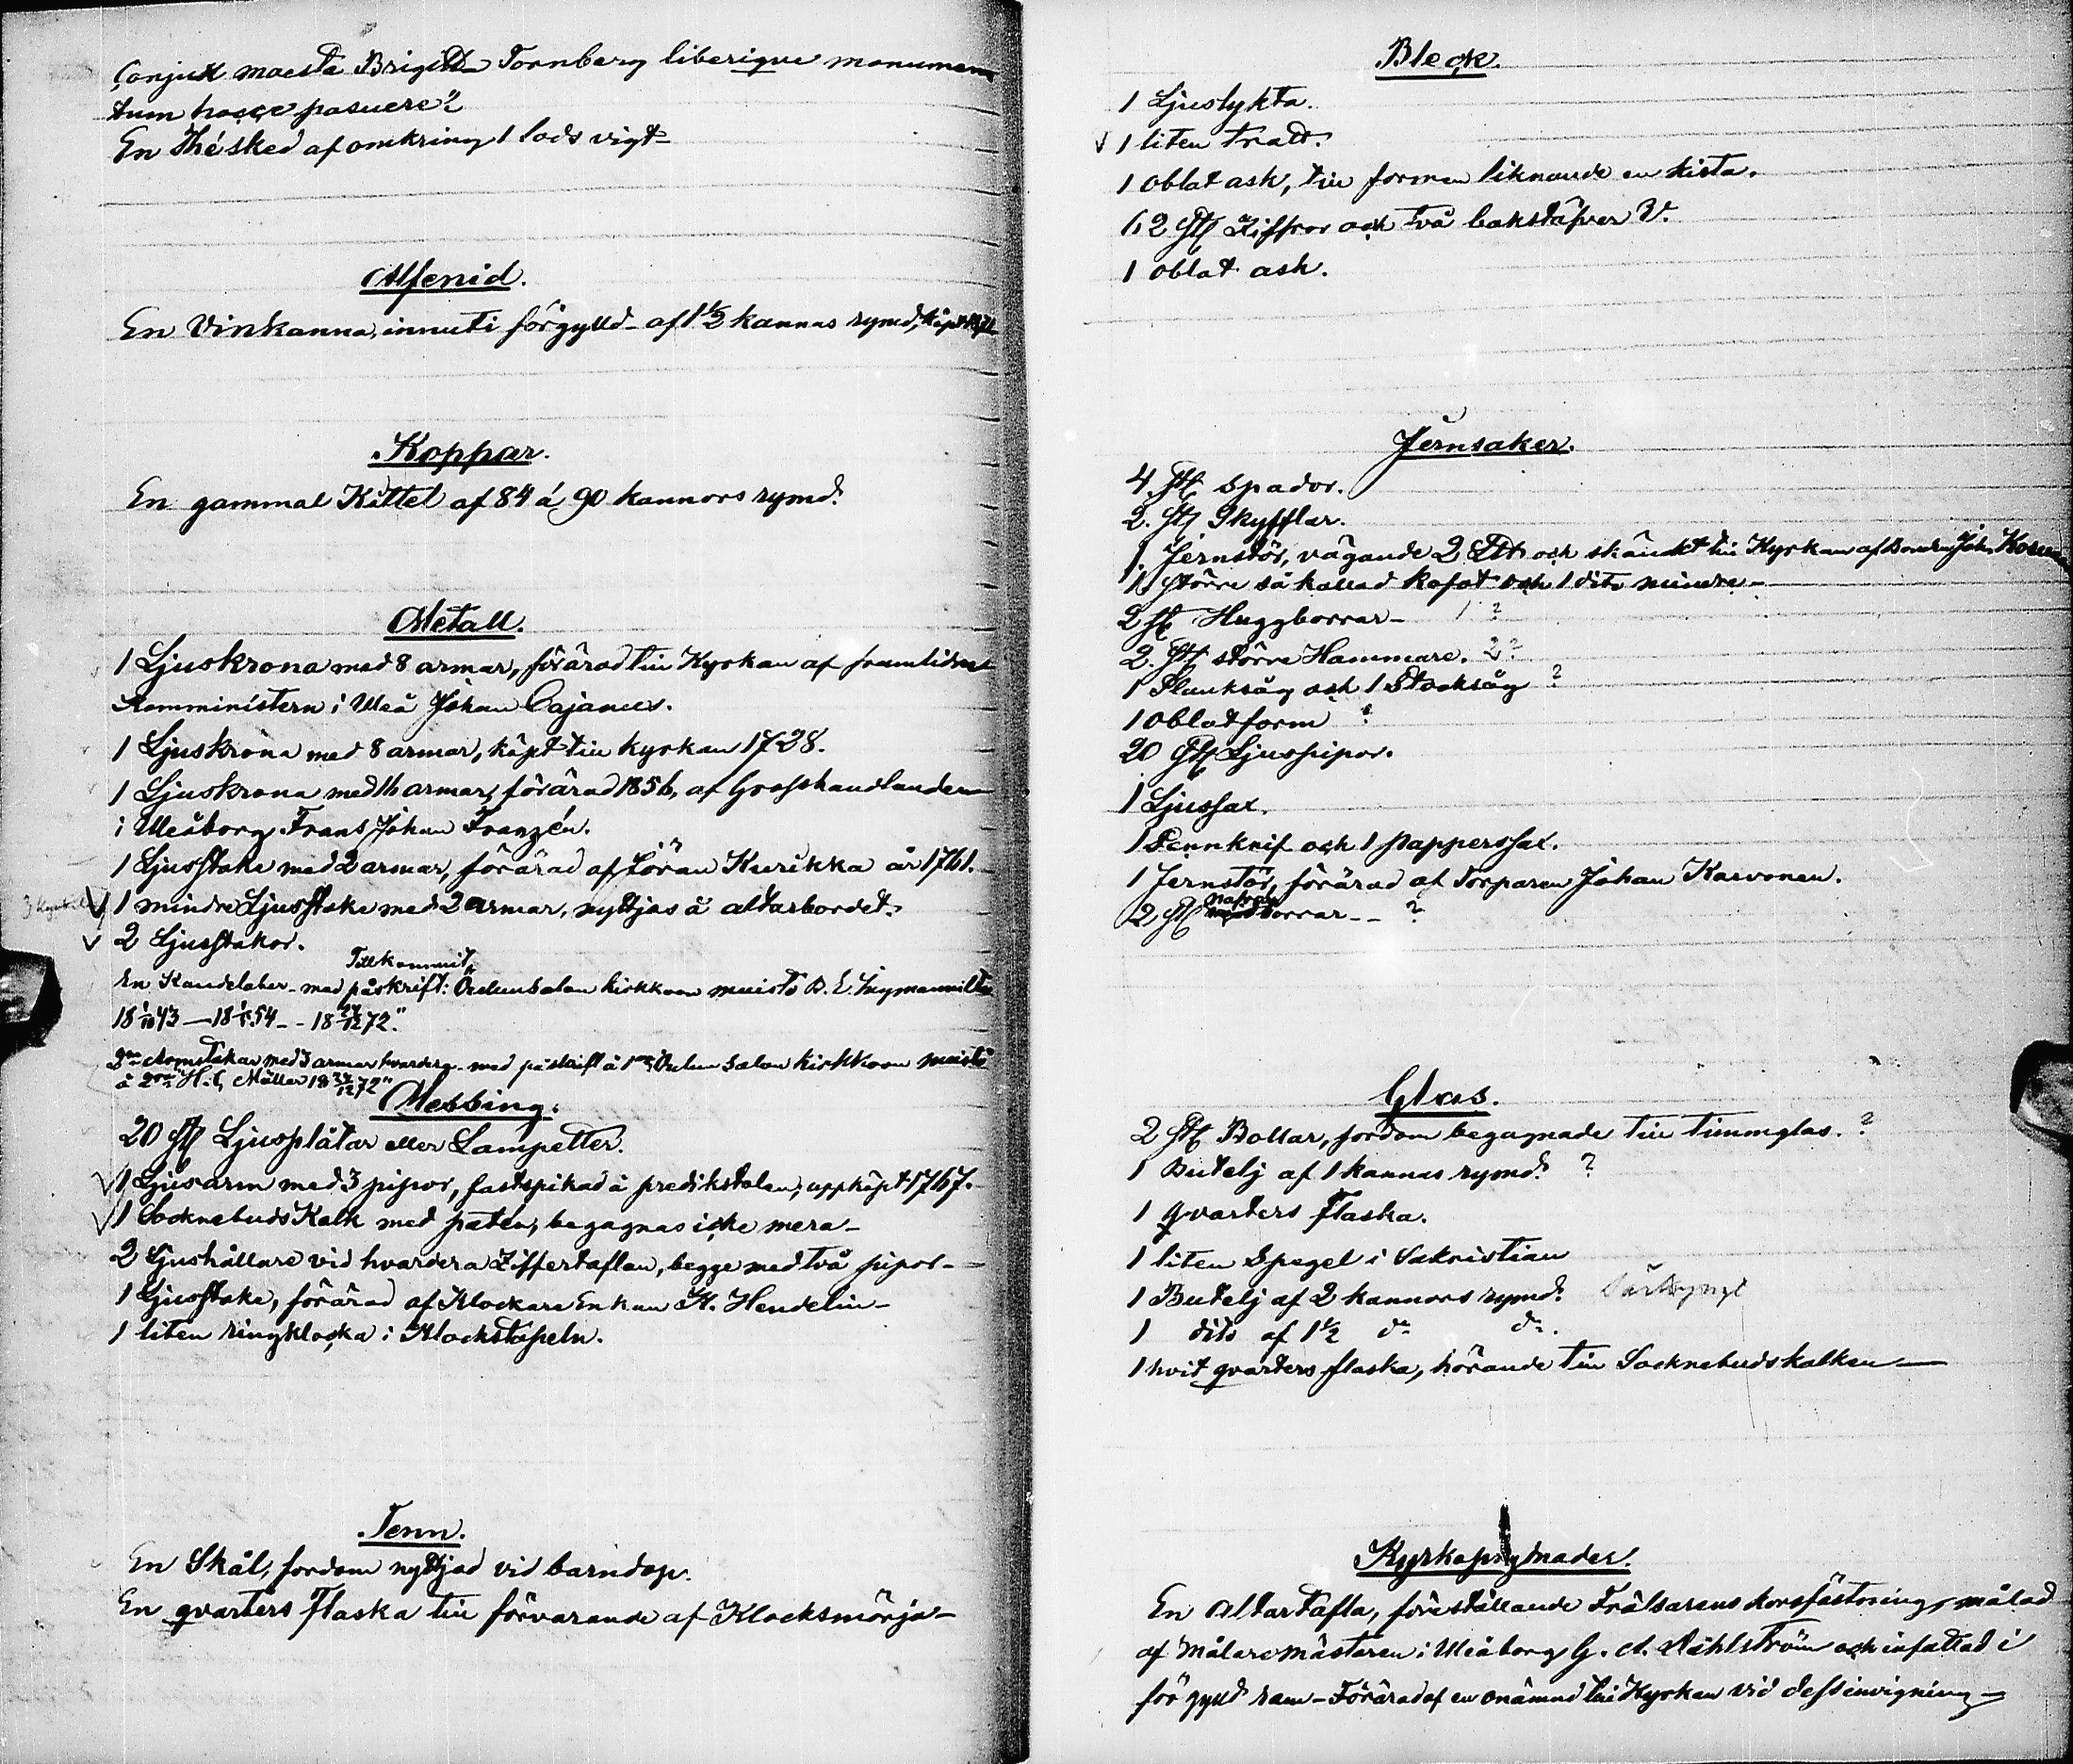 Conjux maesta Brigitta Tornberg liberique monumen
tum hocce posuere"
En Thésked af omkring 1 lods vigt
Alfenid.
En Vinkanna, innuti förgylld af 1 1/2 kannas rymd, köpt
Koppar.
En gammal Kittel af 84 á 90 kannors rymd.
Metall.
1 Ljuskrona med 8 armar, förärad till Kyrkan af framlidne
Komministern i Uleå Johan Cajanus.
1 Ljuskrona med 8 armar, köpt till kyrkan 1728.
1 Ljuskrona med 16 armar, förärad 1856, af Grosshandlanden
i Uleåborg Frans Johan Franzén.
1 Ljusstake med 2 armar, förärad af Göran Kurikka år 1761.
1 mindre Ljusstake med 2 armar, nyttjas å altarbordet.
2 Ljusstakor.
Tillkommit
En Kandelaber med påskrift: Oulunsalon kirkkoon muisto
18 1/10 43 — 18 1/5 54 - 18 24/12 72."
2ne Armstakar med 3 armar hvardera med påskrift å 1na: Oulun salon kirkkoon muisto
å 2dra H. C. Möller 18 24/12 72"
Messing.
20 st Ljusplåtar eller Lampetter.
1 Ljusarm med 3 pipor, fastspikad å predikstolen, uppköpt 1767.
1 SocknebudsKalk med paten, begagnas icke mera
2 Ljushållare vid hvardera Ziffertaflan, begge med två pipor
1 Ljusstake, förärad af Klockare Enkan K. Hendelin
1 liten ringklocka i Klockstapeln.
Tenn.
En Skål, fordom nyttjad vid barndop.
En qvarters Flaska till förvarande af Klocksmörja
Bleck.
1 Ljuslykta.
1 liten Tratt.
1 oblat ask, till formen liknande en kista.
62 st Ziffror och två bokstäfver V.
1 oblat ask.
Jernsaker.
4 st Spador.
2 st Skyfflar.
1 Jernstör, vägande 2 och skänkt till Kyrkan af Bonden Joh.
1 Större så kallad kofot och 1 dito mindre
2 st Huggborrar 1 ?
2 st större Hammare. 2 ?
1 Planksåg och 1 Stocksåg ?
1 Oblatform ?
20 st Ljuspipor.
1 Ljussax.
1 Pennknif och 1 papperssax.
1 Jernstör, förärad af Torparen Johan Karvonen.
2 st borrar ?
Glas.
2 st Bollar, fordom begagnade till timmglas. ?
1 Butelj af 1 kannas rymd. ?
1 qvarters flaska.
1 liten Spegel i Sakristian
1 Butelj af 2 kannors rymd.
1 dito af 1 1/2 do do.
1 hvit qvarters flaska, hörande till Socknebudskalken
Kyrkoprydnader.
En Altartafla, föreställande Frälsarens korsfästning, målad
af Målaremästaren i Uleåborg G. A. Wahlström och infattad i
förgylld ram - Förärad af en onämnd till Kyrkan vid dess invigning